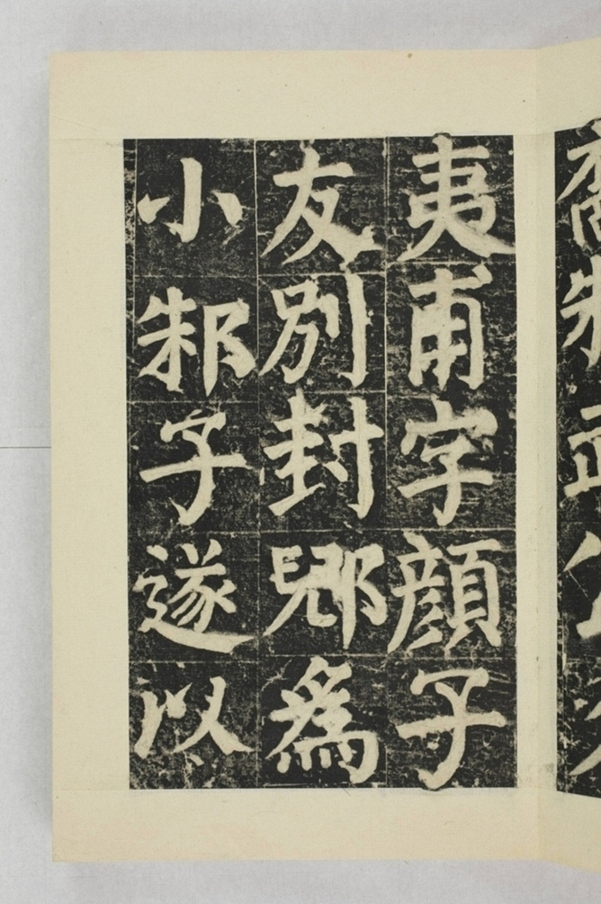 夷甫字顏子
友別封郳為
小邾子遂以